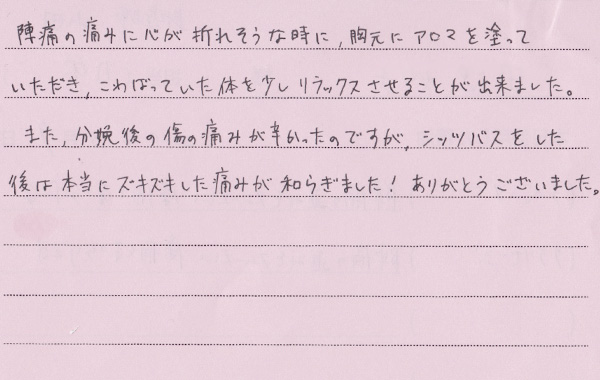 陣痛の痛みに心が折れそうな時に、胸元にアロマを塗って
いただき、こわばっていた体を少しリラックスさせることが出来ました。
また、分娩後の傷の痛みが辛かったのですが、シッツバスをした
後は本当にズキズキした痛みが和らぎました！ありがとうございました。